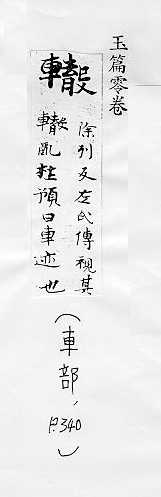 玉篇零卷
轍
除列反左氏傳視其
轍亂杜預曰車迹也
(車部, P.340)